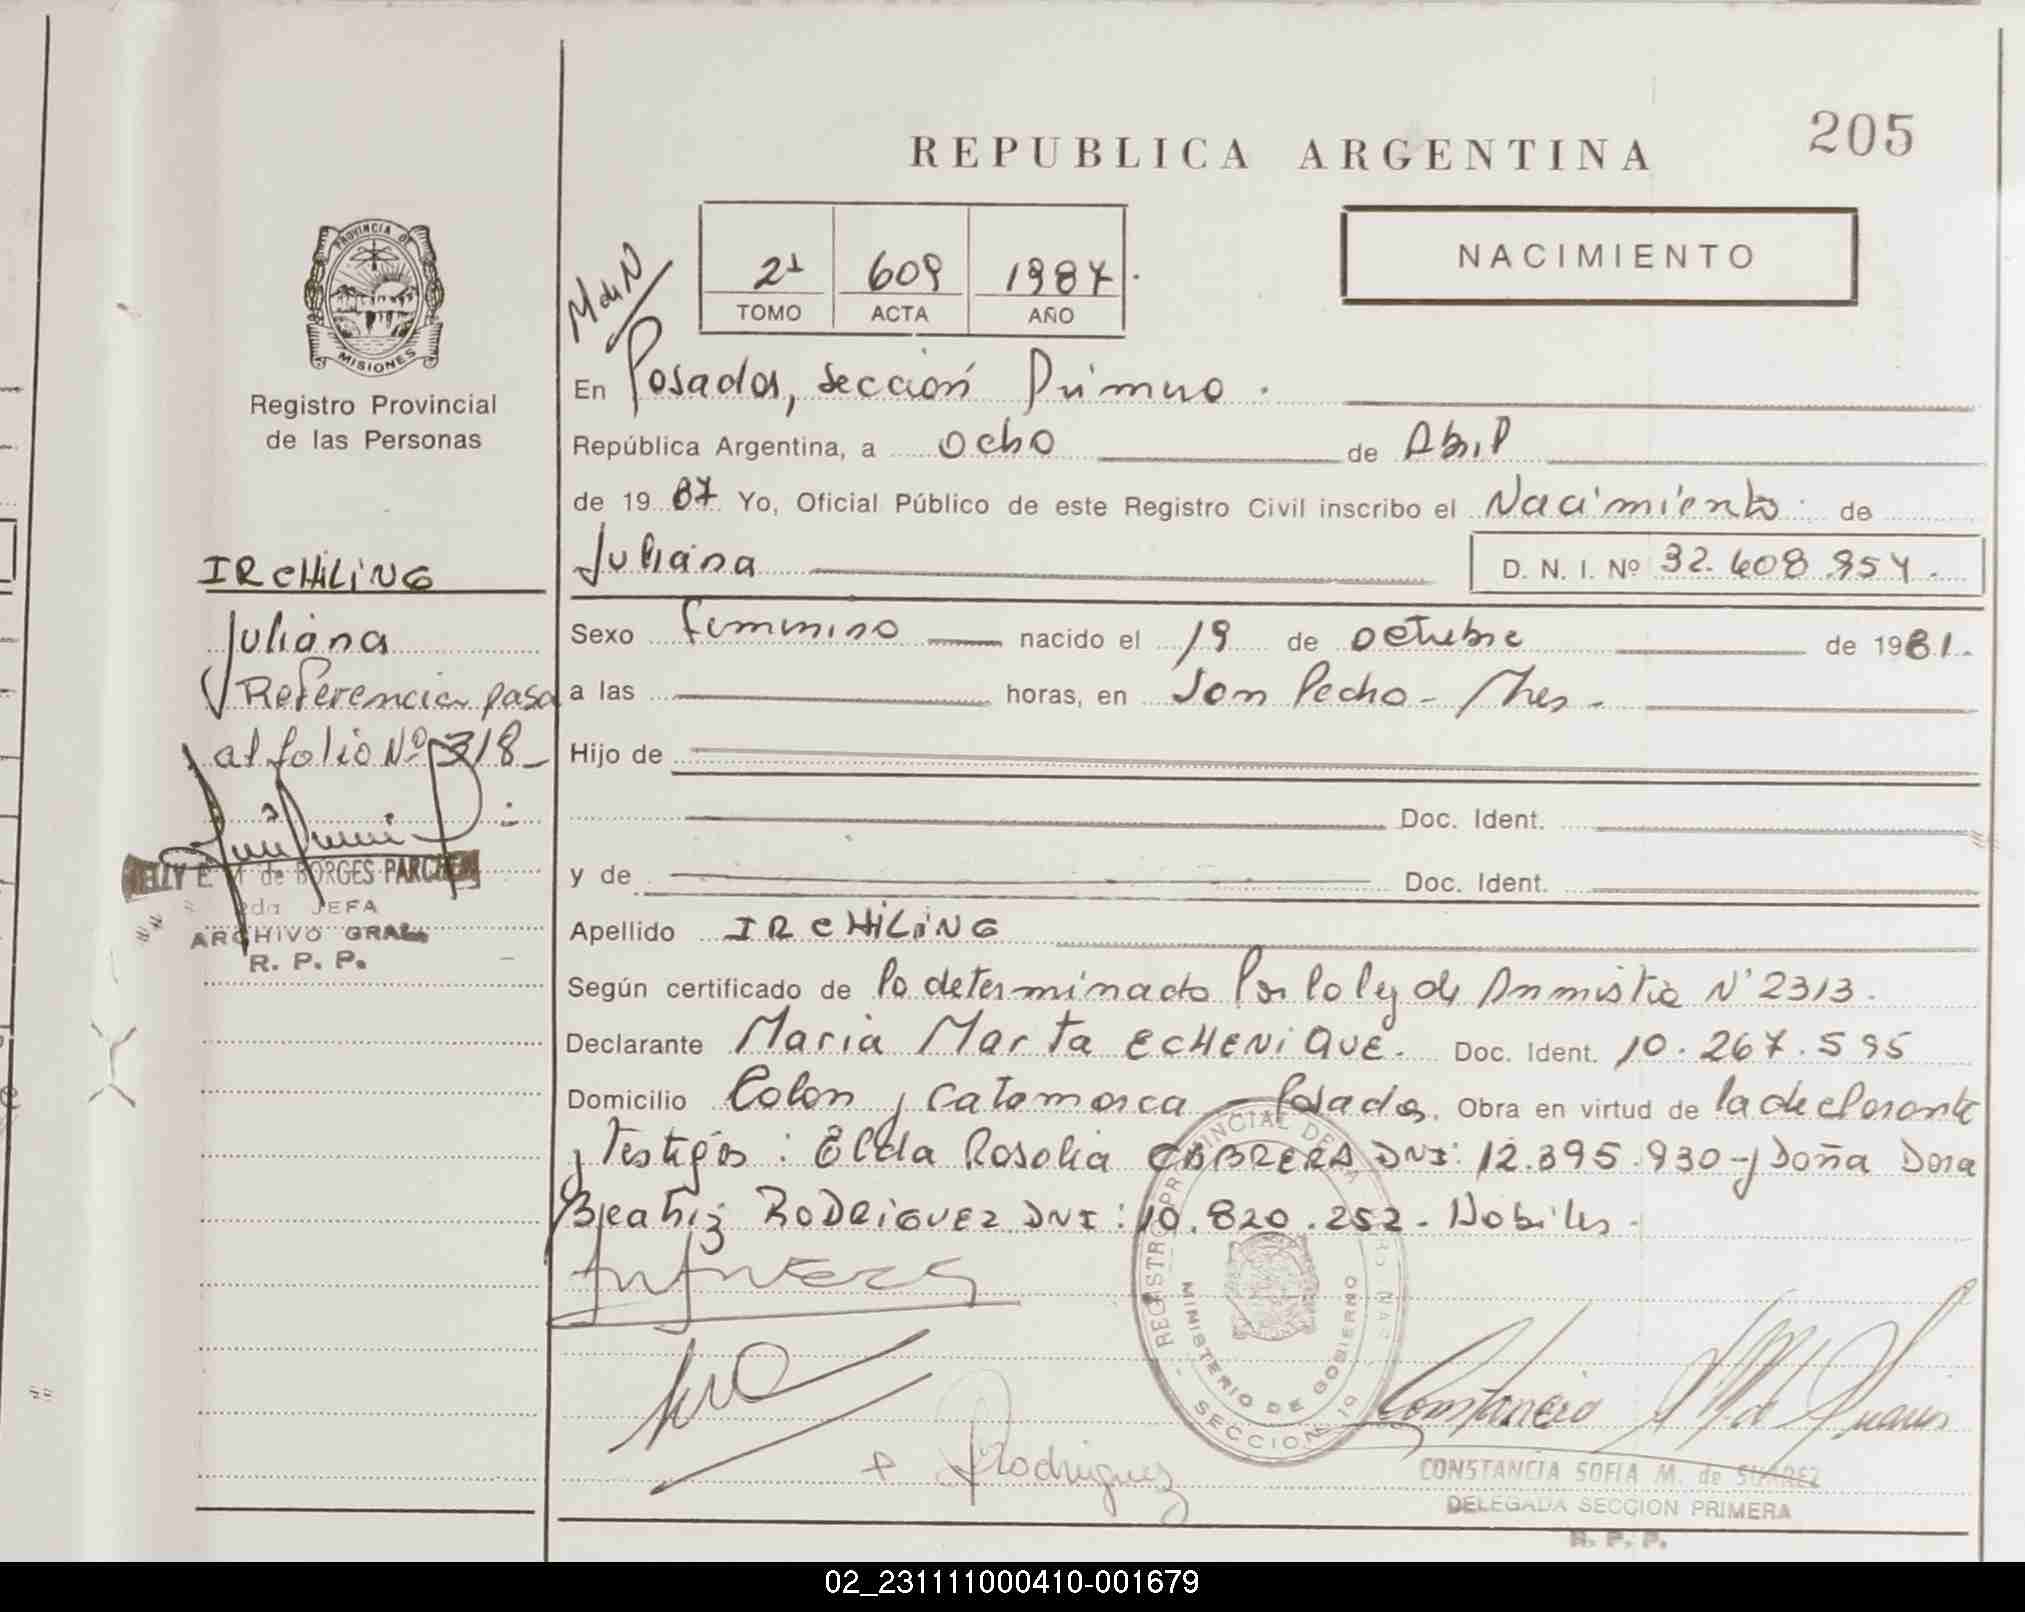 205
REPUBLICA ARGENTINA
NACIMIENTO
M de N
2º 609 1987.
TOMO ACTA AÑO
PROVINCIA DE
MISIONES
Registro Provincial
de las Personas
IRCHILING
Juliana
Referencia pasa
al folio Nº 318
de BORGES
2da JEFA
ARCHIVO GRAL.
R. P. P.
En Posadas, sección Primera.
República Argentina, a ocho de Abril
de 1987 Yo, Oficial Público de este Registro Civil inscribo el Nacimiento de
Juliana D. N. I. Nº 32.608.954.
Sexo femenino nacido el 19 de octubre de 1981.
a las horas, en San Pedro - Mnes.
Hijo de
Doc. Ident.
y de Doc. Ident.
Apellido IRCHILING
Según certificado de lo determinado por la ley de Amnistia Nº 2313.
Declarante Maria Marta ECHENIQUE. Doc. Ident. 10.267.595
Domicilio Colon y Catamarca - Posadas. Obra en virtud de la declarante
y Testigos: Elda Rosalia CABRERA DNI: 12.395.930 - y Doña Dora
Beatriz RODRIGUEZ DNI: 10.820.252. Habiles.
REGISTRO PROVINCIAL DE LAS
MINISTERIO DE GOBIERNO
SECCION 1º
Rodriguez
Constancia M. de Suarez
CONSTANCIA SOFIA M. de SUAREZ
DELEGADA SECCION PRIMERA
R. P. P.
02_231111000410-001679